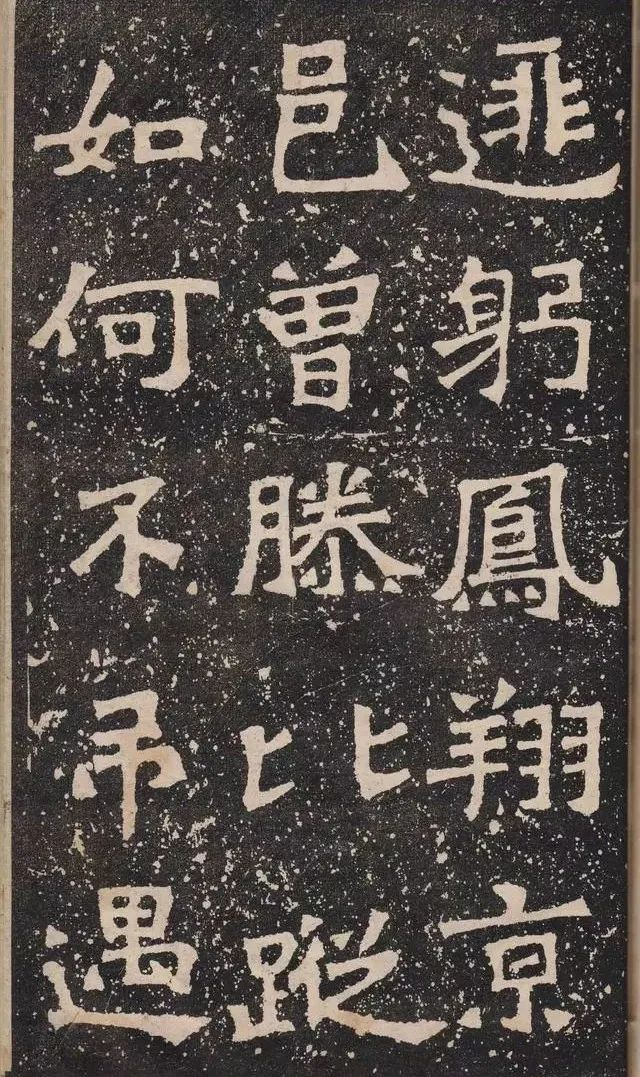 匪躬鳳翔京
邑曾滕比蹤
如何不弔遇